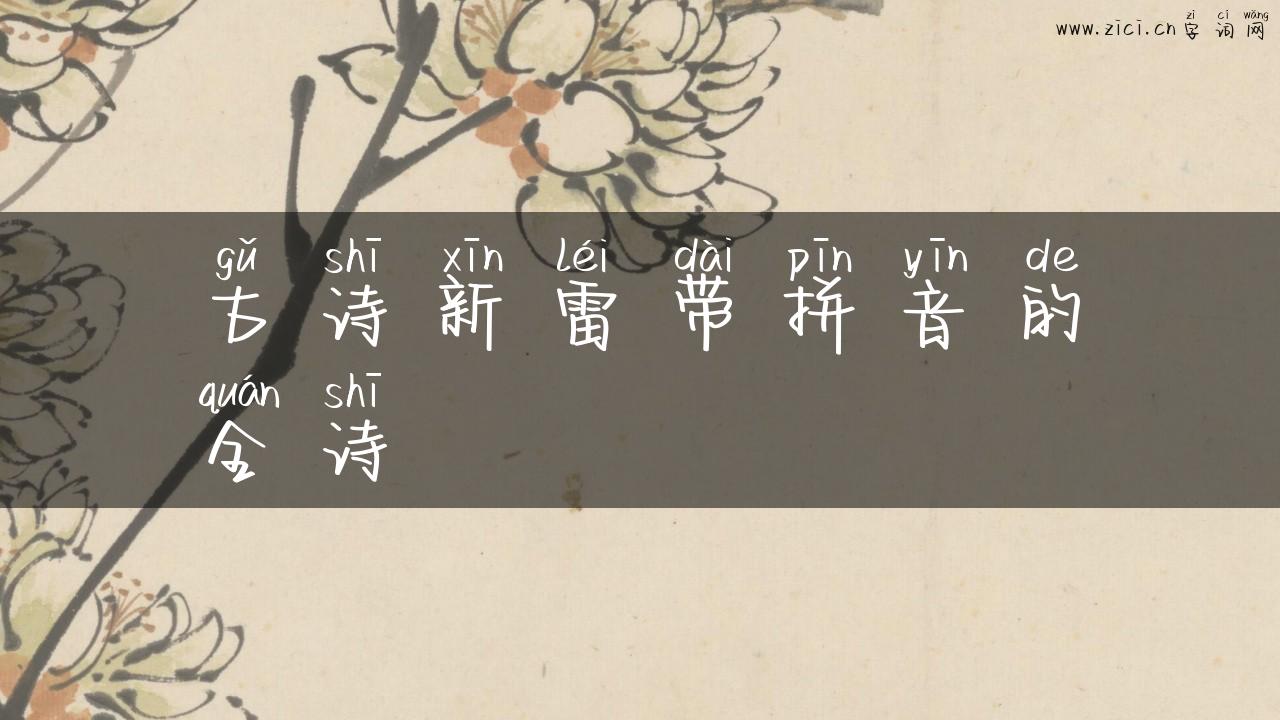 zì cí wǎng
www.zici.cn 字词网
gǔ shī xīn léi dài pīn yīn de
古诗新雷带拼音的
quán shī
全诗